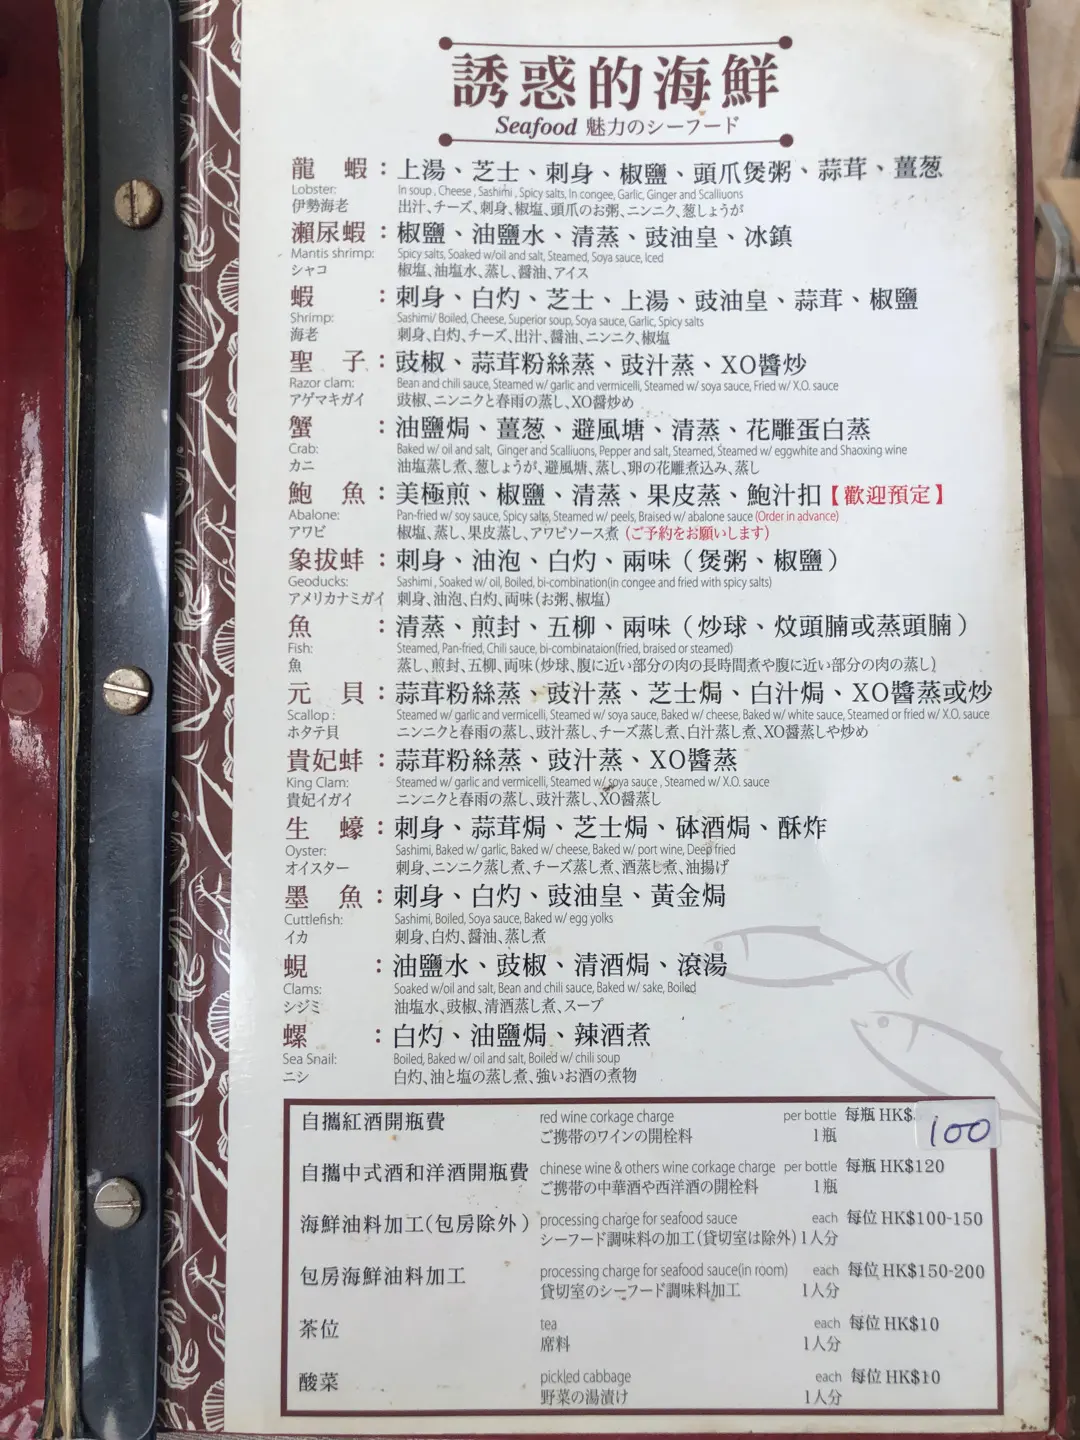 誘惑的海鮮
Seafood 魅力のシーフード
龍 蝦：上湯、芝士、刺身、椒鹽、頭爪煲粥、蒜茸、薑葱
Lobster: In soup , Cheese , Sashimi , Spicy salts, In congee, Garlic, Ginger and Scalliuons
伊勢海老 出汁、チーズ、刺身、椒塩、頭爪のお粥、ニンニク、葱しょうが
瀨尿蝦：椒鹽、油鹽水、清蒸、豉油皇、冰鎮
Mantis shrimp: Spicy salts, Soaked w/oil and salt, Steamed, Soya sauce, Iced
シャコ 椒塩、油塩水、蒸し、醤油、アイス
蝦：刺身、白灼、芝士、上湯、豉油皇、蒜茸、椒鹽
Shrimp: Sashimi/ Boiled, Cheese, Superior soup, Soya sauce, Garlic, Spicy salts
海老 刺身、白灼、チーズ、出汁、醤油、ニンニク、椒塩
聖 子：豉椒、蒜茸粉絲蒸、豉汁蒸、XO醬炒
Razor clam: Bean and chili sauce, Steamed w/ garlic and vermicelli, Steamed w/ soya sauce, Fried w/ X.O. sauce
アゲマキガイ 豉椒、ニンニクと春雨の蒸し、XO醤炒め
蟹：油鹽焗、薑葱、避風塘、清蒸、花雕蛋白蒸
Crab: Baked w/ oil and salt, Ginger and Scalliuons, Pepper and salt, Steamed, Steamed w/ eggwhite and Shaoxing wine
カニ 油塩蒸し煮、葱しょうが、避風塘、蒸し、卵の花雕煮込み、蒸し
鮑 魚：美極煎、椒鹽、清蒸、果皮蒸、鮑汁扣【歡迎預定】
Abalone: Pan-fried w/ soy sauce, Spicy salts, Steamed w/ peels, Braised w/ abalone sauce (Order in advance)
アワビ 椒塩、蒸し、果皮蒸し、アワビソース煮（ご予約をお願いします）
象拔蚌：刺身、油泡、白灼、兩味（煲粥、椒鹽）
Geoducks: Sashimi , Soaked w/ oil, Boiled, bi-combination(in congee and fried with spicy salts)
アメリカナミガイ 刺身、油泡、白灼、両味（お粥、椒塩）
魚：清蒸、煎封、五柳、兩味（炒球、炆頭腩或蒸頭腩）
Fish: Steamed, Pan-fried, Chili sauce, bi-combinataion(fried, braised or steamed)
魚 蒸し、煎封、五柳、両味（炒球、腹に近い部分の肉の長時間煮や腹に近い部分の肉の蒸し）
元 貝：蒜茸粉絲蒸、豉汁蒸、芝士焗、白汁焗、XO醬蒸或炒
Scallop : Steamed w/ garlic and vermicelli, Steamed w/ soya sauce, Baked w/ cheese, Baked w/ white sauce, Steamed or fried w/ X.O. sauce
ホタテ貝 ニンニクと春雨の蒸し、豉汁蒸し、チーズ蒸し煮、白汁蒸し煮、XO醤蒸しや炒め
貴妃蚌：蒜茸粉絲蒸、豉汁蒸、XO醬蒸
King Clam: Steamed w/ garlic and vermicelli, Steamed w/ soya sauce , Steamed w/ X.O. sauce
貴妃イガイ ニンニクと春雨の蒸し、豉汁蒸し、XO醤蒸し
生 蠔：刺身、蒜茸焗、芝士焗、砵酒焗、酥炸
Oyster: Sashimi, Baked w/ garlic, Baked w/ cheese, Baked w/ port wine, Deep fried
オイスター 刺身、ニンニク蒸し煮、チーズ蒸し煮、酒蒸し煮、油揚げ
墨 魚：刺身、白灼、豉油皇、黃金焗
Cuttlefish: Sashimi, Boiled, Soya sauce, Baked w/ egg yolks
イカ 刺身、白灼、醤油、蒸し煮
蜆：油鹽水、豉椒、清酒焗、滾湯
Clams: Soaked w/oil and salt, Bean and chili sauce, Baked w/ sake, Boiled
シジミ 油塩水、豉椒、清酒蒸し煮、スープ
螺：白灼、油鹽焗、辣酒煮
Sea Snail: Boiled, Baked w/ oil and salt, Boiled w/ chili soup
ニシ 白灼、油と塩の蒸し煮、強いお酒の煮物
自攜紅酒開瓶費 red wine corkage charge per bottle 每瓶 HK$ 100
ご携帯のワインの開栓料 1瓶
自攜中式酒和洋酒開瓶費 chinese wine & others wine corkage charge per bottle 每瓶 HK$120
ご携帯の中華酒や西洋酒の開栓料 1瓶
海鮮油料加工（包房除外） processing charge for seafood sauce each 每位 HK$100-150
シーフード調味料の加工（貸切室は除外） 1人分
包房海鮮油料加工 processing charge for seafood sauce(in room) each 每位 HK$150-200
貸切室のシーフード調味料加工 1人分
茶位 tea each 每位 HK$10
席料 1人分
酸菜 pickled cabbage each 每位 HK$10
野菜の湯漬け 1人分